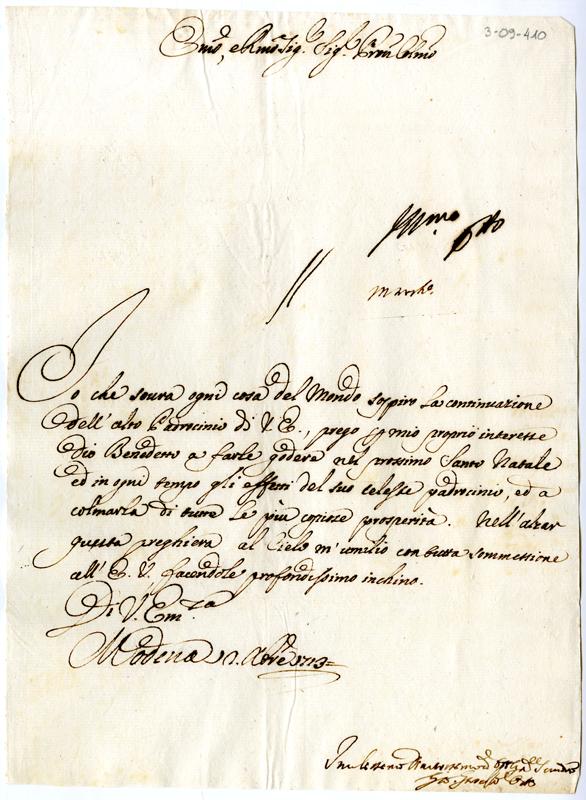 3-09-410
Em̃o, e Rm̃o Sig.r Sig.r Pron Colm̃o
Ill.mo
March.
Io che sovra ogni cosa del Mondo sospiro la continuazione
dell'alto Padrocinio di V. E., prego p mio proprio interesse
Dio Benedetto a farle godere nel prossimo Santo Natale
ed in ogni tempo gli effetti del suo celeste padrocinio, ed a
colmarla di tutte le più copiose prosperità. Nell'alzar
questa preghiera al Cielo m'umilio con tutta sommessione
all'E. V. facendole profondissimo inchino.
Di V. Em.za
Modena 1713